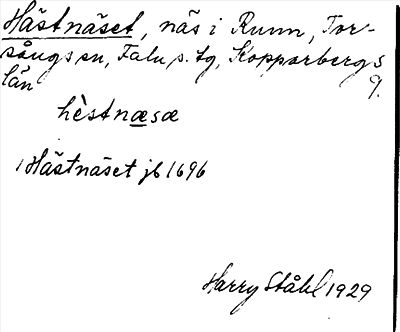 Hästnäset, näs i Runn, Tor-
sångs sn, Falu s. tg, Kopparbergs
län 9.
hèstnæsæ
1 Hästnäset jb 1696
Harry Ståhl 1929